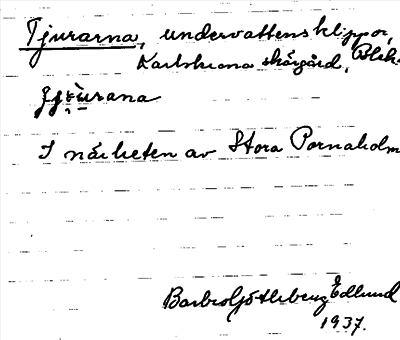 Tjurarna, undervattensklippor,
Karlskrona skärgård, Blek.
I närheten av Stora Pornaholm
Barbro Götlberg Edlund
1937.